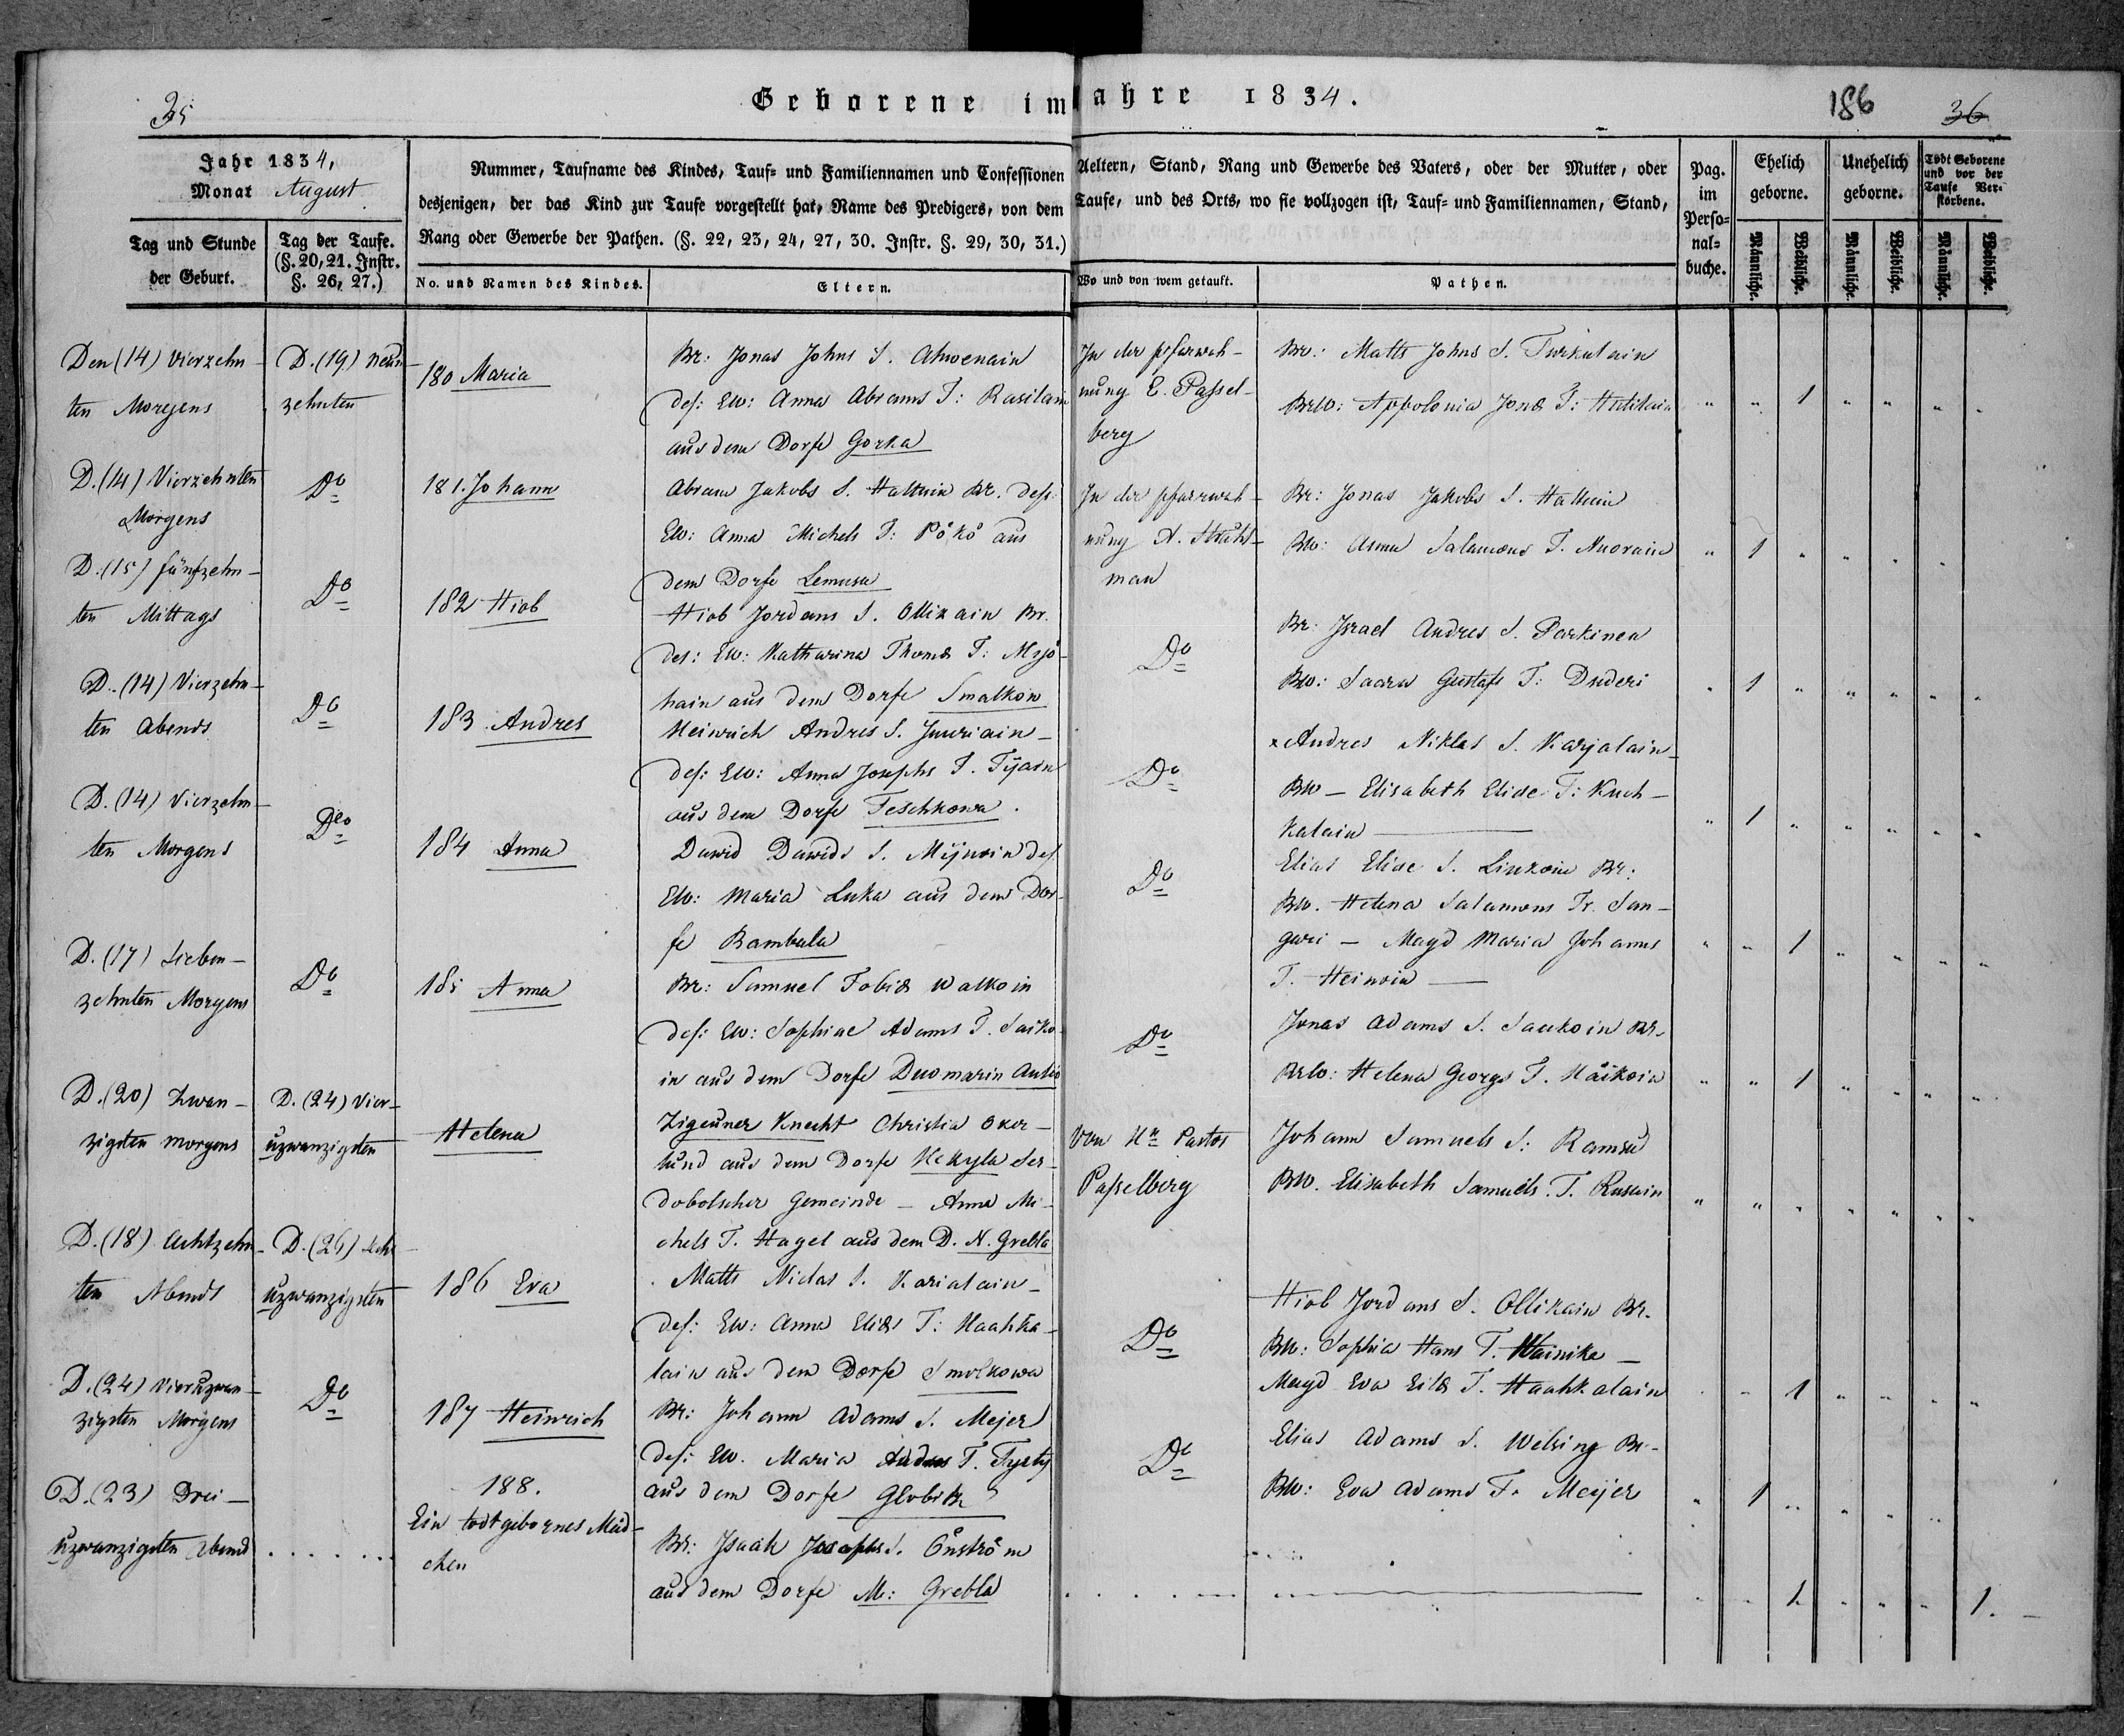 35
Geborene im Jahre 1834.
186 36
Jahr 1834,
Monat August
Tag und Stunde
der Geburt.
Tag der Taufe.
(§. 20, 21. Instr.
§. 26, 27.)
Nummer, Taufname des Kindes, Tauf= und Familiennamen und Confessionen Aeltern, Stand, Rang und Gewerbe des Vaters, oder der Mutter, oder
desjenigen, der das Kind zur Taufe vorgestellt hat, Name des Predigers, von dem Taufe, und des Orts, wo sie vollzogen ist, Tauf= und Familiennamen, Stand,
Rang oder Gewerbe der Pathen. (§. 22, 23, 24, 27, 30. Instr. §. 29, 30, 31.)
No. und Namen des Kindes.
Eltern.
Wo und von wem getauft.
Pathen.
Pag.
im
Perso=
nal=
buche.
Ehelich
geborne.
Unehelich
geborne.
Todt Geborene
und vor der
Taufe Ver=
storbene.
Männliche.
Weibliche.
Männliche.
Weibliche.
Männliche.
Weibliche.
Den (14) Vierzehn-
ten Morgens
D. (19) Neun-
zehnten
180 Maria
Br: Jonas Johns S. Ahwenain
des: Ew: Anna Abrams T: Rasilain
aus dem Dorfe Gorka
In der pfarrwoh-
nung E. Passel-
berg
Br: Matts Johns S. Turkulain
BrW: Appolonia Jons T: Hutilain
" " 1 " " " "
D. (14) Vierzehnten
Morgens
Do
181. Johann
Abram Jakobs S. Haltuin Br. des:
Ew: Anna Michels T: Pökö aus
dem Dorfe Lemusa
In der pfarrwoh-
nung A. Strahl-
man
Br: Jonas Jakobs S. Haltuin
BW: Anna Salamons T. Nuorain
" 1 " " " "
D. (15) fünfzehn-
ten Mittags
Do
182 Hiob
Hiob Jordans S. Ollikain Br.
des: Ew: Katharina Thoms T:
hain aus dem Dorfe Smalkow
Do
Br: Israel Andres S. Parkinen
BW: Saara Gustafs T: Duderi
" 1 " " " " "
D. (14) Vierzehn-
ten Abends
Do
183 Andres
Heinrich Andres S. Juuriain-
des: Ew: Anna Josephs T. Tijain
aus dem Dorfe Teschkowa.
Do
Andres Niklas S. Karjalain-
BW - Elisabeth Eliae T: Kuch-
kalain
" 1 " " " " "
D. (14) Vierzehn-
ten Morgens
Dto
184 Anna
Dawid Dawids S. Mijnoin des.
Ew: Maria Luka aus dem Dor-
fe Rambala
Do
Elias Eliae S. Linkoin Br:
BW. Helena Salamons Tr. San-
geri - Magd Maria Johanns
T. Heinoin
" " 1 " " " "
D. (17) Sieben-
zehnten Morgens
Do
185 Anna
Br: Samuel Tobias Walkoin
des: Ew: Sophiae Adams T. Saiko-
in aus dem Dorfe Duomarin
Do
Jonas Adams S. Saukoin Br.
BrW: Helena Georgs T. Häikoin
" " 1 " " " "
D. (20) Zwan-
zigsten morgens
D. (24) Vier-
uzwanzigsten
Helena
Zigeuner Knecht Christia Oker-
lund aus dem Dorfe Hekyla Ser-
dobolscher Gemeinde - Anna Mi-
chels T. Hagel aus dem D. N. Grebla
Von Hr Pastor
Passelberg
Johann Samuels S: Ramsu
BW. Elisabeth Samuels. T. Rusain
" " " " " " "
D. (18) Achtzehn-
ten Abends
D. (26) Sechs-
uzwanzigsten
186 Eva
Matts Niclas S. Karialain-
des: Ew: Anna Elias T: Haahka-
lain aus dem Dorfe Smolkowa
Do
Hiob Jordans S. Ollikain Br.
BW: Sophia Hans T. Wainika -
Magd Eva Elias T. Haahkalain
" " 1 " " " "
D. (24) Vieruzwan-
zigsten Morgens
Do
187 Heinrich
Br: Johann Adams S. Mejer
des: Ew. Maria Andres T. Tysty
aus dem Dorfe Globitz
Do
Elias Adams S. Welsing Br-
BW: Eva Adams T. Meijer
" 1 " " " "
D. (23) Drei-
uzwanzigsten Abend
188.
Ein todtgebornes Mäd-
chen
Br: Isaak Josephs S. Önström
aus dem Dorfe M: Grebla
" " 1. " " " 1.